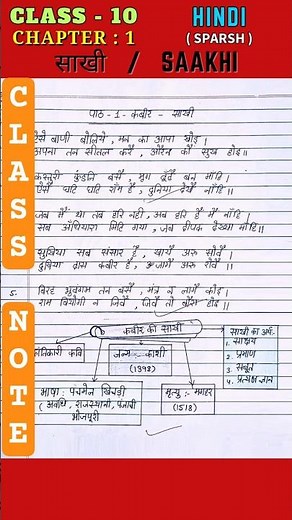 CLASS - 10
HINDI
CHAPTER : 1
( SPARSH )
साखी / SAAKHI
CLASS
NOTE
पाठ - 1 - कबीर - साखी
ऐसे बाणी बोलिये, मन का आपा खोइ।
अपना तन सीतल करै, औरन कौं सुख होइ॥
कस्तूरी कुंडलि बसै, मृग ढूँढै बन माँहि।
ऐसैं घटि घटि राँम है, दुनिया देखै नाँहिं॥
जब मैं था तब हरि नहीं, अब हरि हैं मैं नाँहि।
सब अँधियारा मिटि गया, जब दीपक देख्या माँहि॥
सुखिया सब संसार है, खायै अरु सोवै।
दुखिया दास कबीर है, जागै अरु रोवै॥
5. बिरह भुवंगम तन बसै, मंत्र न लागै कोइ।
राम बियोगी न जिवै, जिवै तो बौरा होइ॥
कबीर की साखी
साखी का अर्थ
1. साक्ष्य
2. प्रमाण
3. सबूत
4. प्रत्यक्ष ज्ञान
क्रांतिकारी कवि
जन्म :- काशी
(1398)
भाषा : पंचमेल खिचड़ी
( अवधि, राजस्थानी, पंजाबी
भोजपुरी
मृत्यु :- मगहर
(1518)